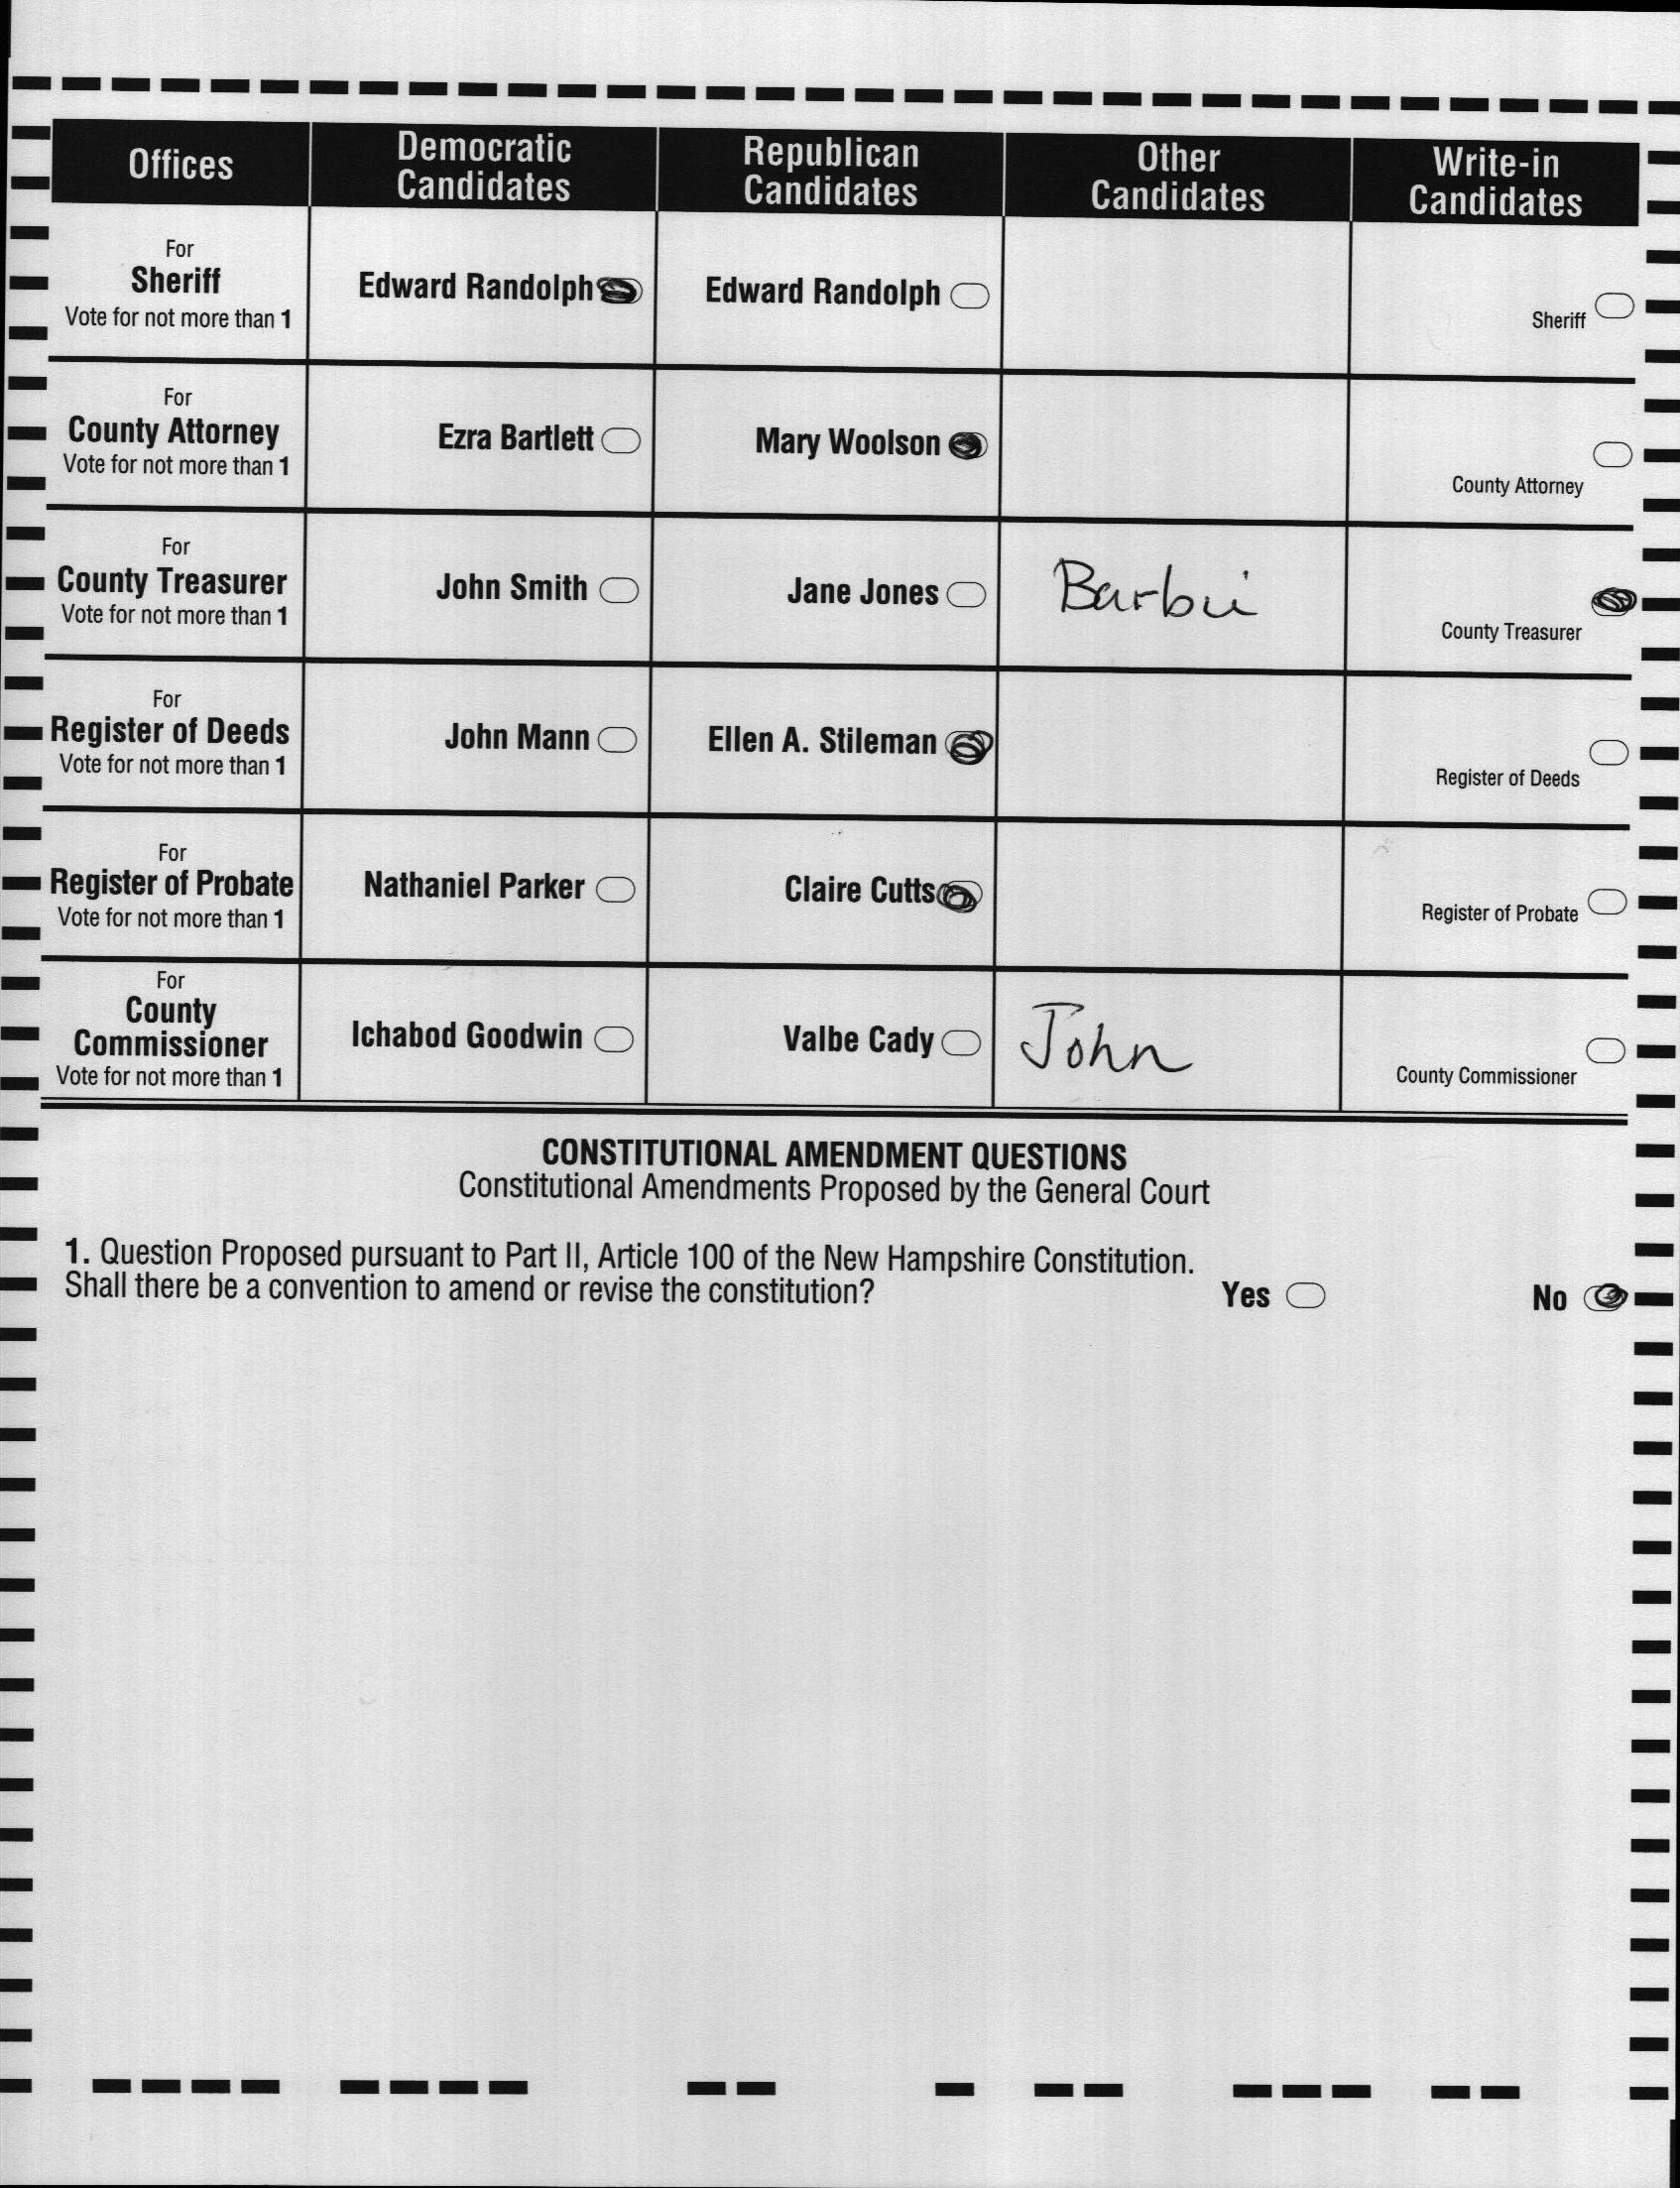 Offices
Democratic Candidates
Republican Candidates
Other Candidates
Write-in Candidates
For
Sheriff
Vote for not more than 1
Edward Randolph
Edward Randolph
Sheriff
For
County Attorney
Vote for not more than 1
Ezra Bartlett
Mary Woolson
County Attorney
For
County Treasurer
Vote for not more than 1
John Smith
Jane Jones
County Treasurer
For
Register of Deeds
Vote for not more than 1
John Mann
Ellen A. Stileman
Register of Deeds
For
Register of Probate
Vote for not more than 1
Nathaniel Parker
Claire Cutts
Register of Probate
For
County
Commissioner
Vote for not more than 1
Ichabod Goodwin
Valbe Cady
John
County Commissioner
CONSTITUTIONAL AMENDMENT QUESTIONS
Constitutional Amendments Proposed by the General Court
1. Question Proposed pursuant to Part II, Article 100 of the New Hampshire Constitution.
Shall there be a convention to amend or revise the constitution?
Yes
No